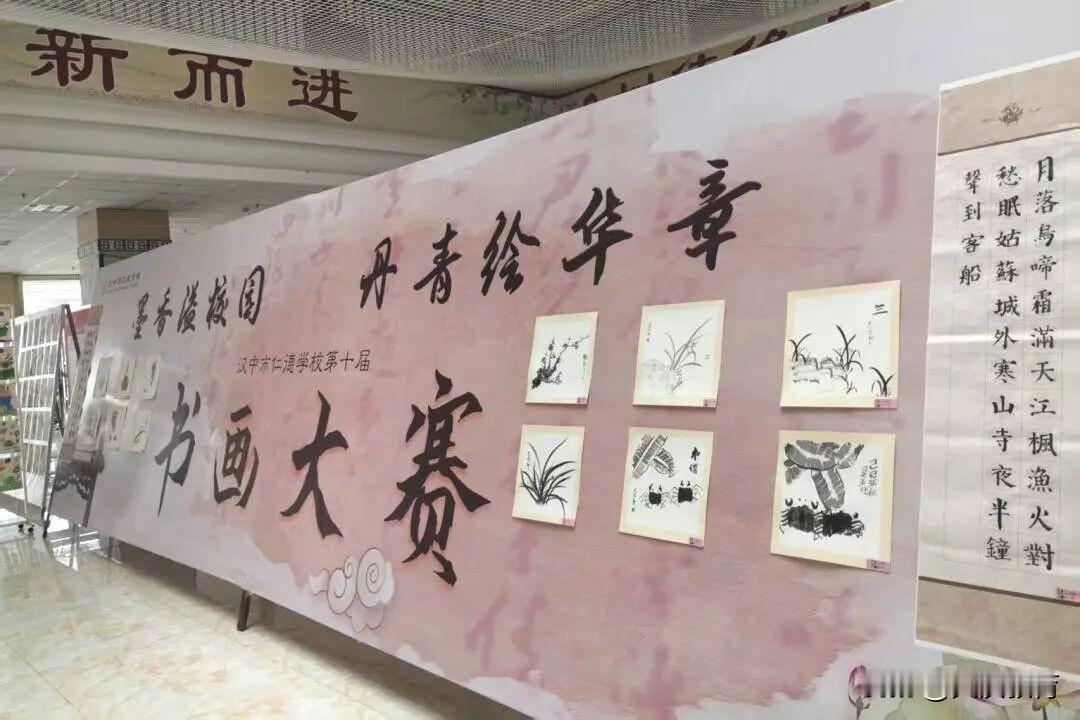 新而进
墨香溢校园 丹青绘华章
汉中市仁德学校第十届
书画大赛
三
月落烏啼霜滿天江楓漁火對
愁眠姑蘇城外寒山寺夜半鐘
聲到客船